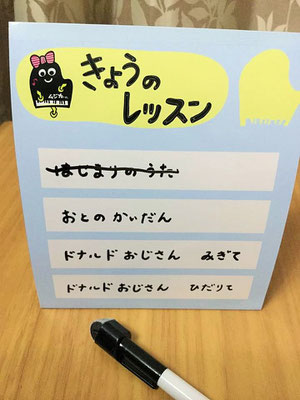 きょうの
レッスン
はじまりのうた
おとのかいだん
ドナルドおじさん みぎて
ドナルドおじさん ひだりて